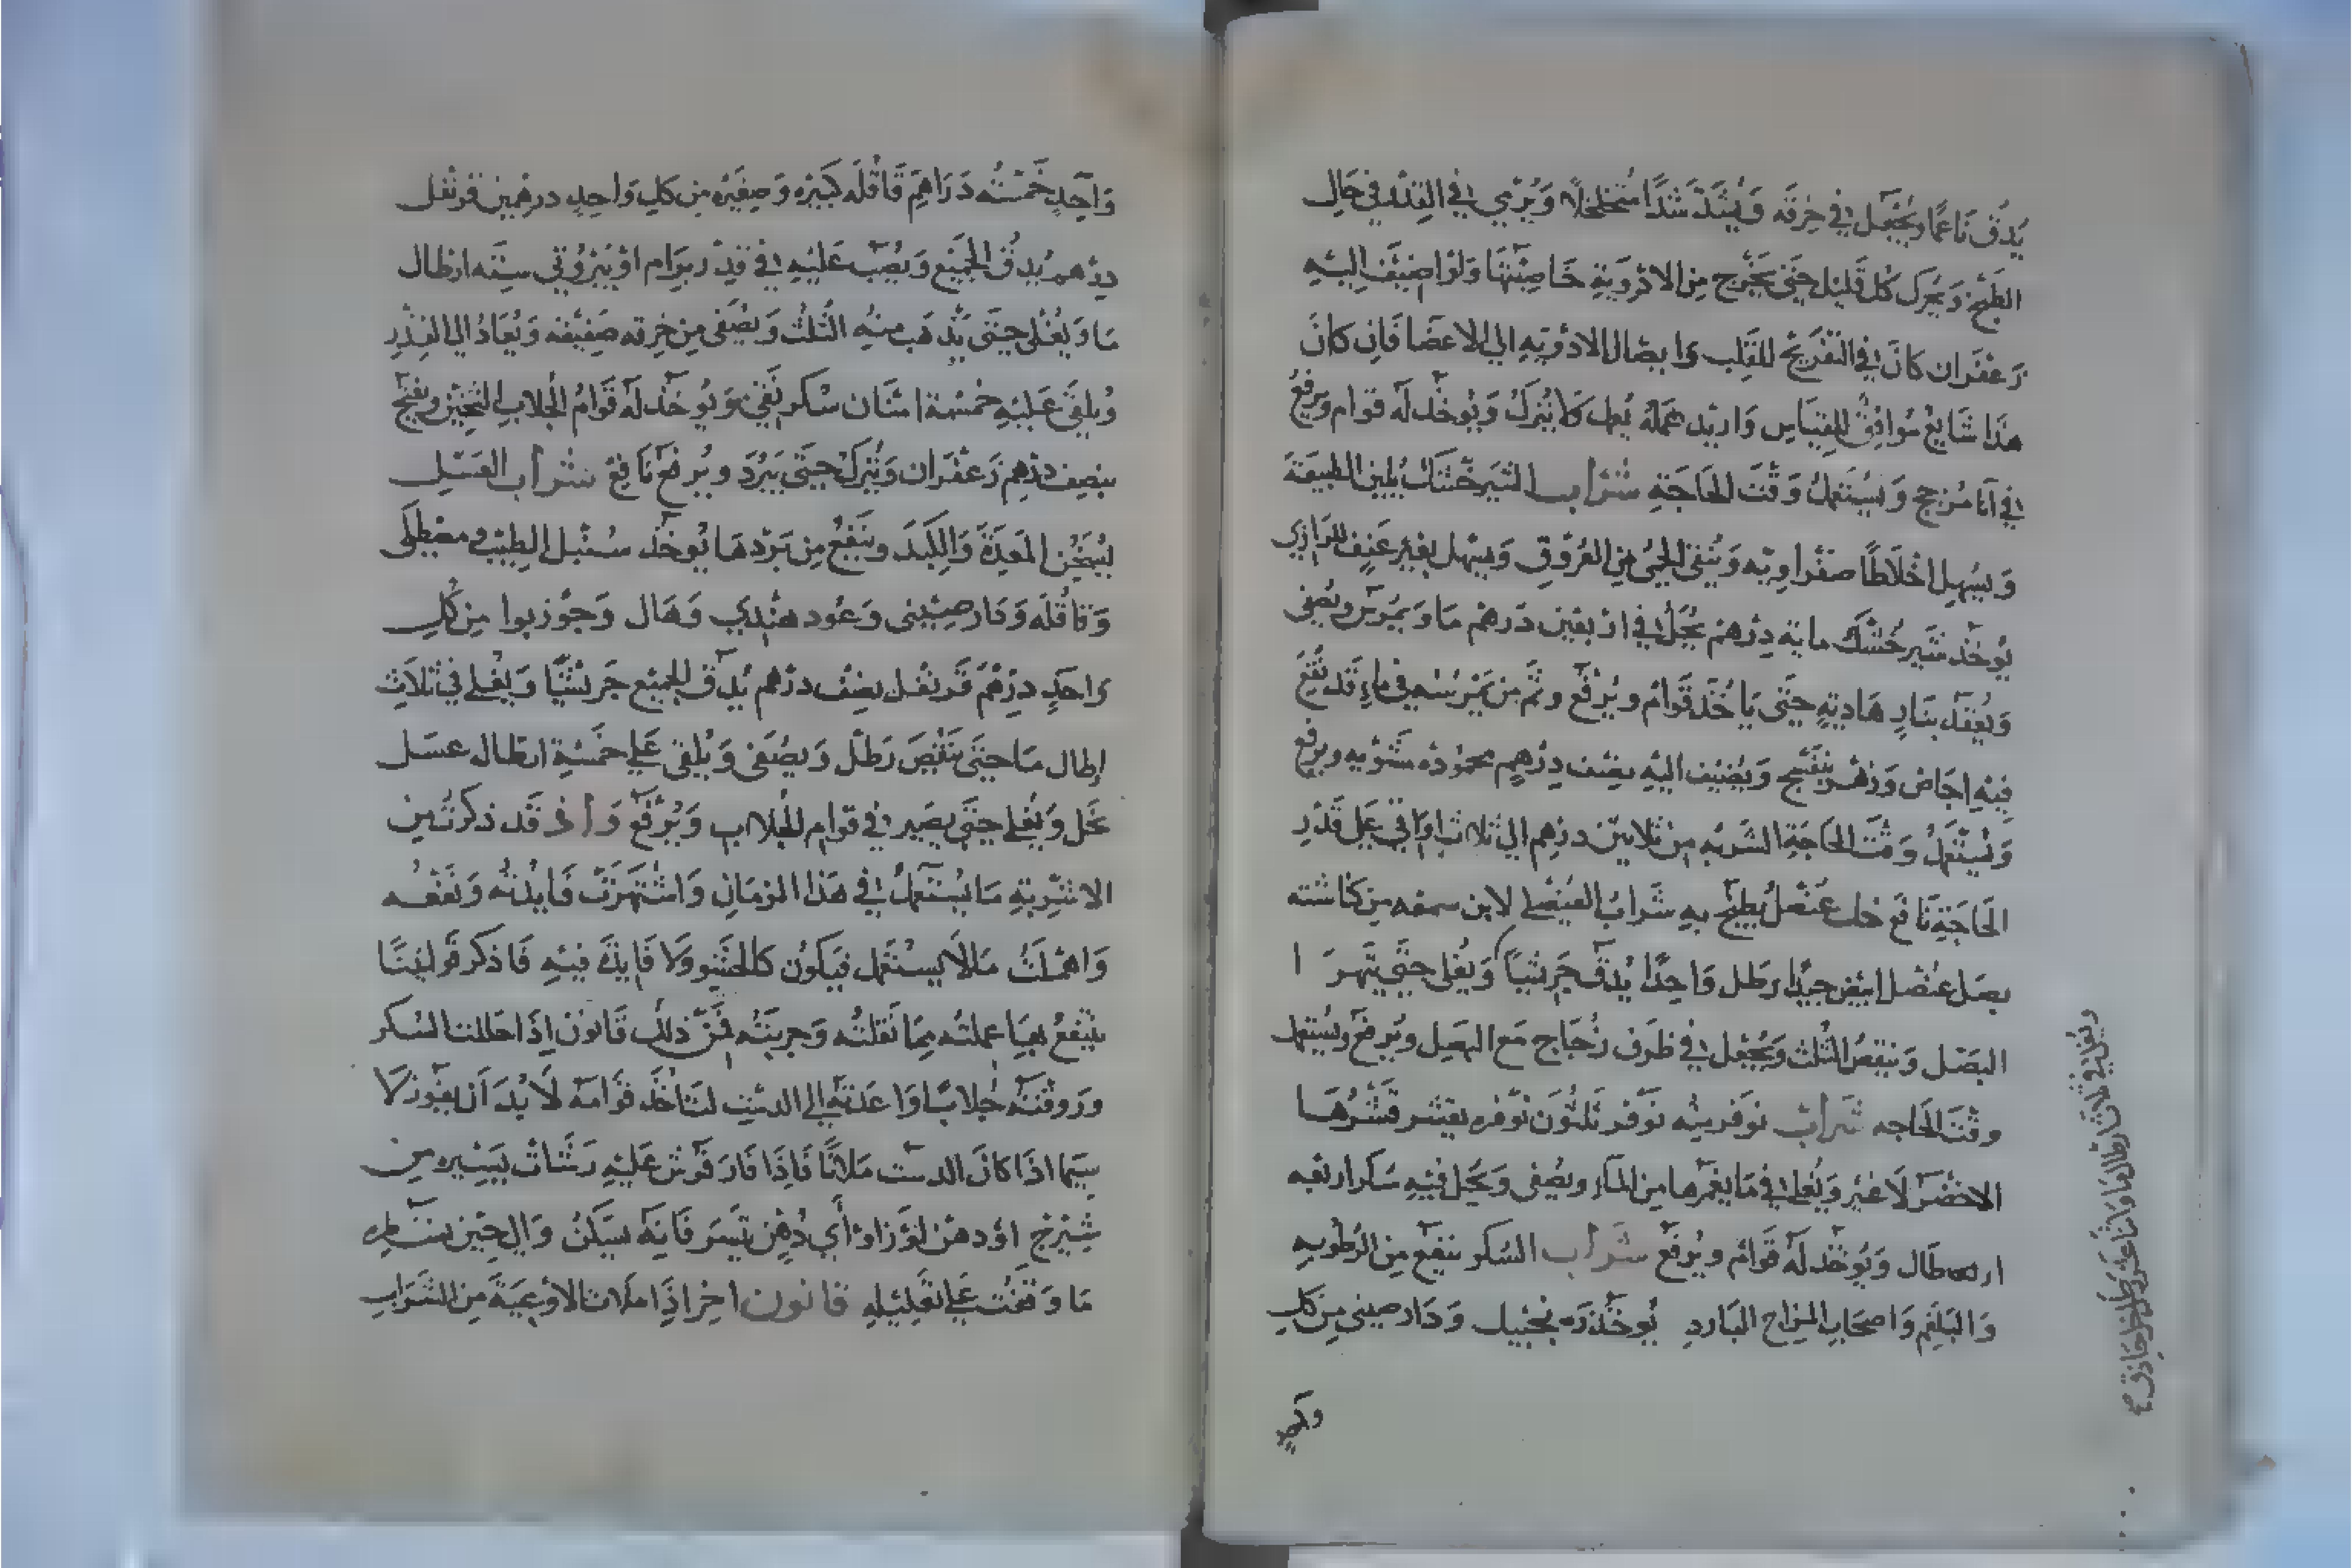 يُدَق نَاعِمًا ويُجعَل في خرقه وَيُشَدّ شَدًّا مُتخلخلًا وَيُرْمي في القِدر في حَالِ
الطَبْخ وَيحرك كل قليل حَتَّى يخرج مِن الادْوِيَةِ خاصيتهَا وَلوْ اضيفَ إليْهِ
زَعفَران كَانَ في التَّفْرِيح للقَلب وايصَال الادْوِيَه الي الاعضَا فَان كانَ
هذَا شايع مُوافِق للقياس وَاريْد عَمله يُعمل وَلا يُترَك وَيُوخَذ لَهُ قوَام وَيرفعُ
في آنَا مُزجج وَيُسْتعملُ وَقْتَ الحَاجَةِ شَرَاب الشيرخُشك يُلين الطبيعَةَ
وَيسْهِل اخْلَاطًا صَفْراوِيه وَيُنقي الحُمى مِن العُرُوق وَيسْهل بغَيْر عَنِف للرَازِي
يُوخَذ شيرخُشْك مايه دِرْهَم يُحَل في ارْبعِين دَرهَم مَا وَيمرَس ويُصَفى
وَيُعقَد بنَارِ هَادِيَةٍ حَتَّى يَاخُذَ قوَام ويُرْفَع وثم مَن يمرُسُه في ماءٍ قَد نُقِعَ
فِيهِ اجاص وَزهْر بنفْسَج وَيُضِيف اليْهِ نصْف دِرْهم محمُوده مَشْويه ويرفع
وَيُسْتعْمَلُ وَقْتَ الحَاجَةِ الشربه مِن ثلاثين درْهم الي ثلاث اوَاقي عَلي قَدْر
الحَاجَةِ نَافع خل عُنْصُل يُطبخ بهِ شَرَاب العُنْصُلي لابن سمعه من كناشته
بصَل عُنصُل ابيَض جَيدًا رطل وَاحِدًا يُدَق جَرِيشًا وَيُغلى حَتَّى يَتَهرَا
البَصَل وَينقصُ الثُلث وَيُجْعَل في ظرْف زُجَاج مَع البَصل ويُرفع ويُستعمل
وقتَ الحَاجه شَرابُ نوفر ميه نَوفَر ثلثُون نَوفره يقشر قشْرُهَا
الاخضَر لَا غير وَيُغلي في مَا يغمُرها مِن المَاء ويُصفى وَيُحَل فيْهِ سُكر اربعه
ارطال وَيُوخَذ لَهُ قوَام ويُرفع شَرَاب السُكر ينفع مِن الرُطُوبه
وَالبَلغَم وَاصحَاب المِزاج البَارد يُوخَذ زنجبيل وَدَار صيني مِن كلِ
وَاحِدٍ
ويغلي في ثلاث ارطال مَا وَاثنا عشر رطل خل حَاذق صح
وَاحِدٍ خَمسْتُه دَرَاهِم قَاقُلَه كبيرَه وَصغيَره مِن كلِ وَاحِدٍ درهمين قرنفُل
دِرْهم يُدقُ الجَمِيْع وَيُصَبّ عَليْهِ في قِدْر بِرَام اوْ بَيْرُوتي سِتَّه ارْطال
مَا وَيُغلي حَتَّى يَذهَب مِنْهُ الثلُث وَيُصَفَى مِن خِرقه صَفيقه وَيُعَادُ الي القِدْرِ
وُيلقَى عَليْهِ خمْسَة امنَان سُكر نَقي وَيُوخَذ لَهُ قَوَامُ الجُلاب الثخين ويفتح
بنِصف دِرْهم زَعفَران وَيُترَك حَتَّى يَبْرُد ويُرفَع نَافِع شَرَاب العَسَل
يُسَخِّن المَعِدَةَ وَالكَبدَ وينفَعُ مِن بَرْدهَا يُوخَذ سُنْبل الطِيب ومصْطكَى
وَقاقُلَه وَدَارصيْنِي وَعُود هنْدِي وَهَال وَجَوْزبوا مِن كلِ
وَاحِدٍ دِرْهَم قَرنفُل نصْف درْهم يُدَق الجميْع جَريشًا وَيُغلي في ثلاث
ارطال مَا حتَّى يَنْقصَ رَطل وَيُصَفى وَيُلقى عَلي خَمْسَةِ ارْطال عسَل
نحَل وَيُغلي حَتَّى يَصير في قوَام الجُلاب وَيُرْفَع وَاذ قَد ذكرتُ مِن
الاشْرِبَةِ مَا يُسْتعَمَلُ في هَذا الزمَانِ وَاشتَهرَتْ فَايدتُه وَنفعُه
وَاهْمَلتُ مَا لَا يُسْتعَمل فيَكُون كالحشْو وَلا فَايدَة فيْهِ فَاذكر قَوانينًا
يُنتفعُ بهَا عملته مِمَّا نَقلتُه وَجربتُه فَمِن ذلِك قَانُون اِذَا حَللنا السُكر
ورَوقْنَاه جُلابًا وَاعَدنَاه إلي الدسْت لنَاخُذَ قَوَامَه لَا بُدَ اَن يَفُوز لَا
سيَّما اذَا كانَ الدسْت مَلانًا فَاِذَا فَارَ فَرُش عَليْهِ رَشَّاتْ يَسِيره مِن
شِيرَج اوْ دهْن لَوْز اوْ أَي دُهْن تيَسَر فَانَه يسَكنُ وَالي حِين
مَا وَقفت عَلي تعْليْله قانون اخِر اذَا مَلَات الاوْعِيَةَ مِن الشَرَابِ